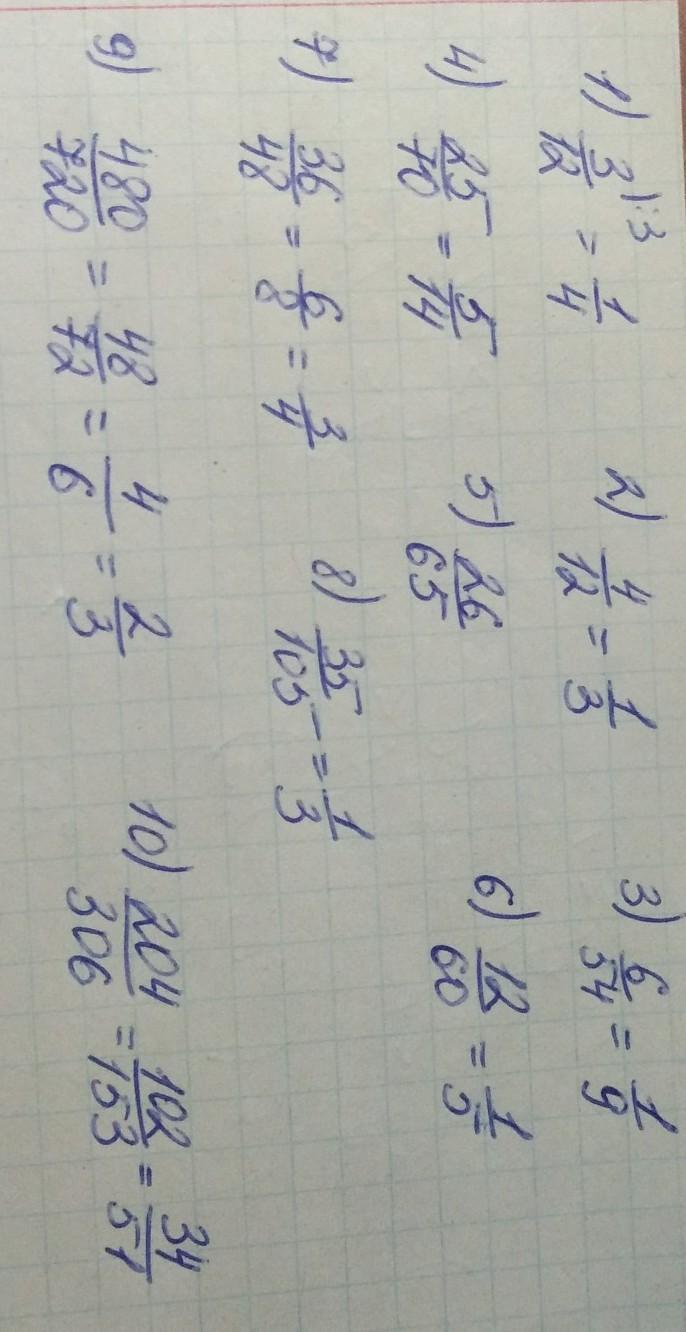 1) 3/12 ):3 = 1/4 2) 4/12 = 1/3 3) 6/54 = 1/9
4) 25/70 = 5/14 5) 26/65 6) 12/60 = 1/5
7) 36/48 = 6/8 = 3/4 8) 35/105 = 1/3
9) 480/720 = 48/72 = 4/6 = 2/3 10) 204/306 = 102/153 = 34/51